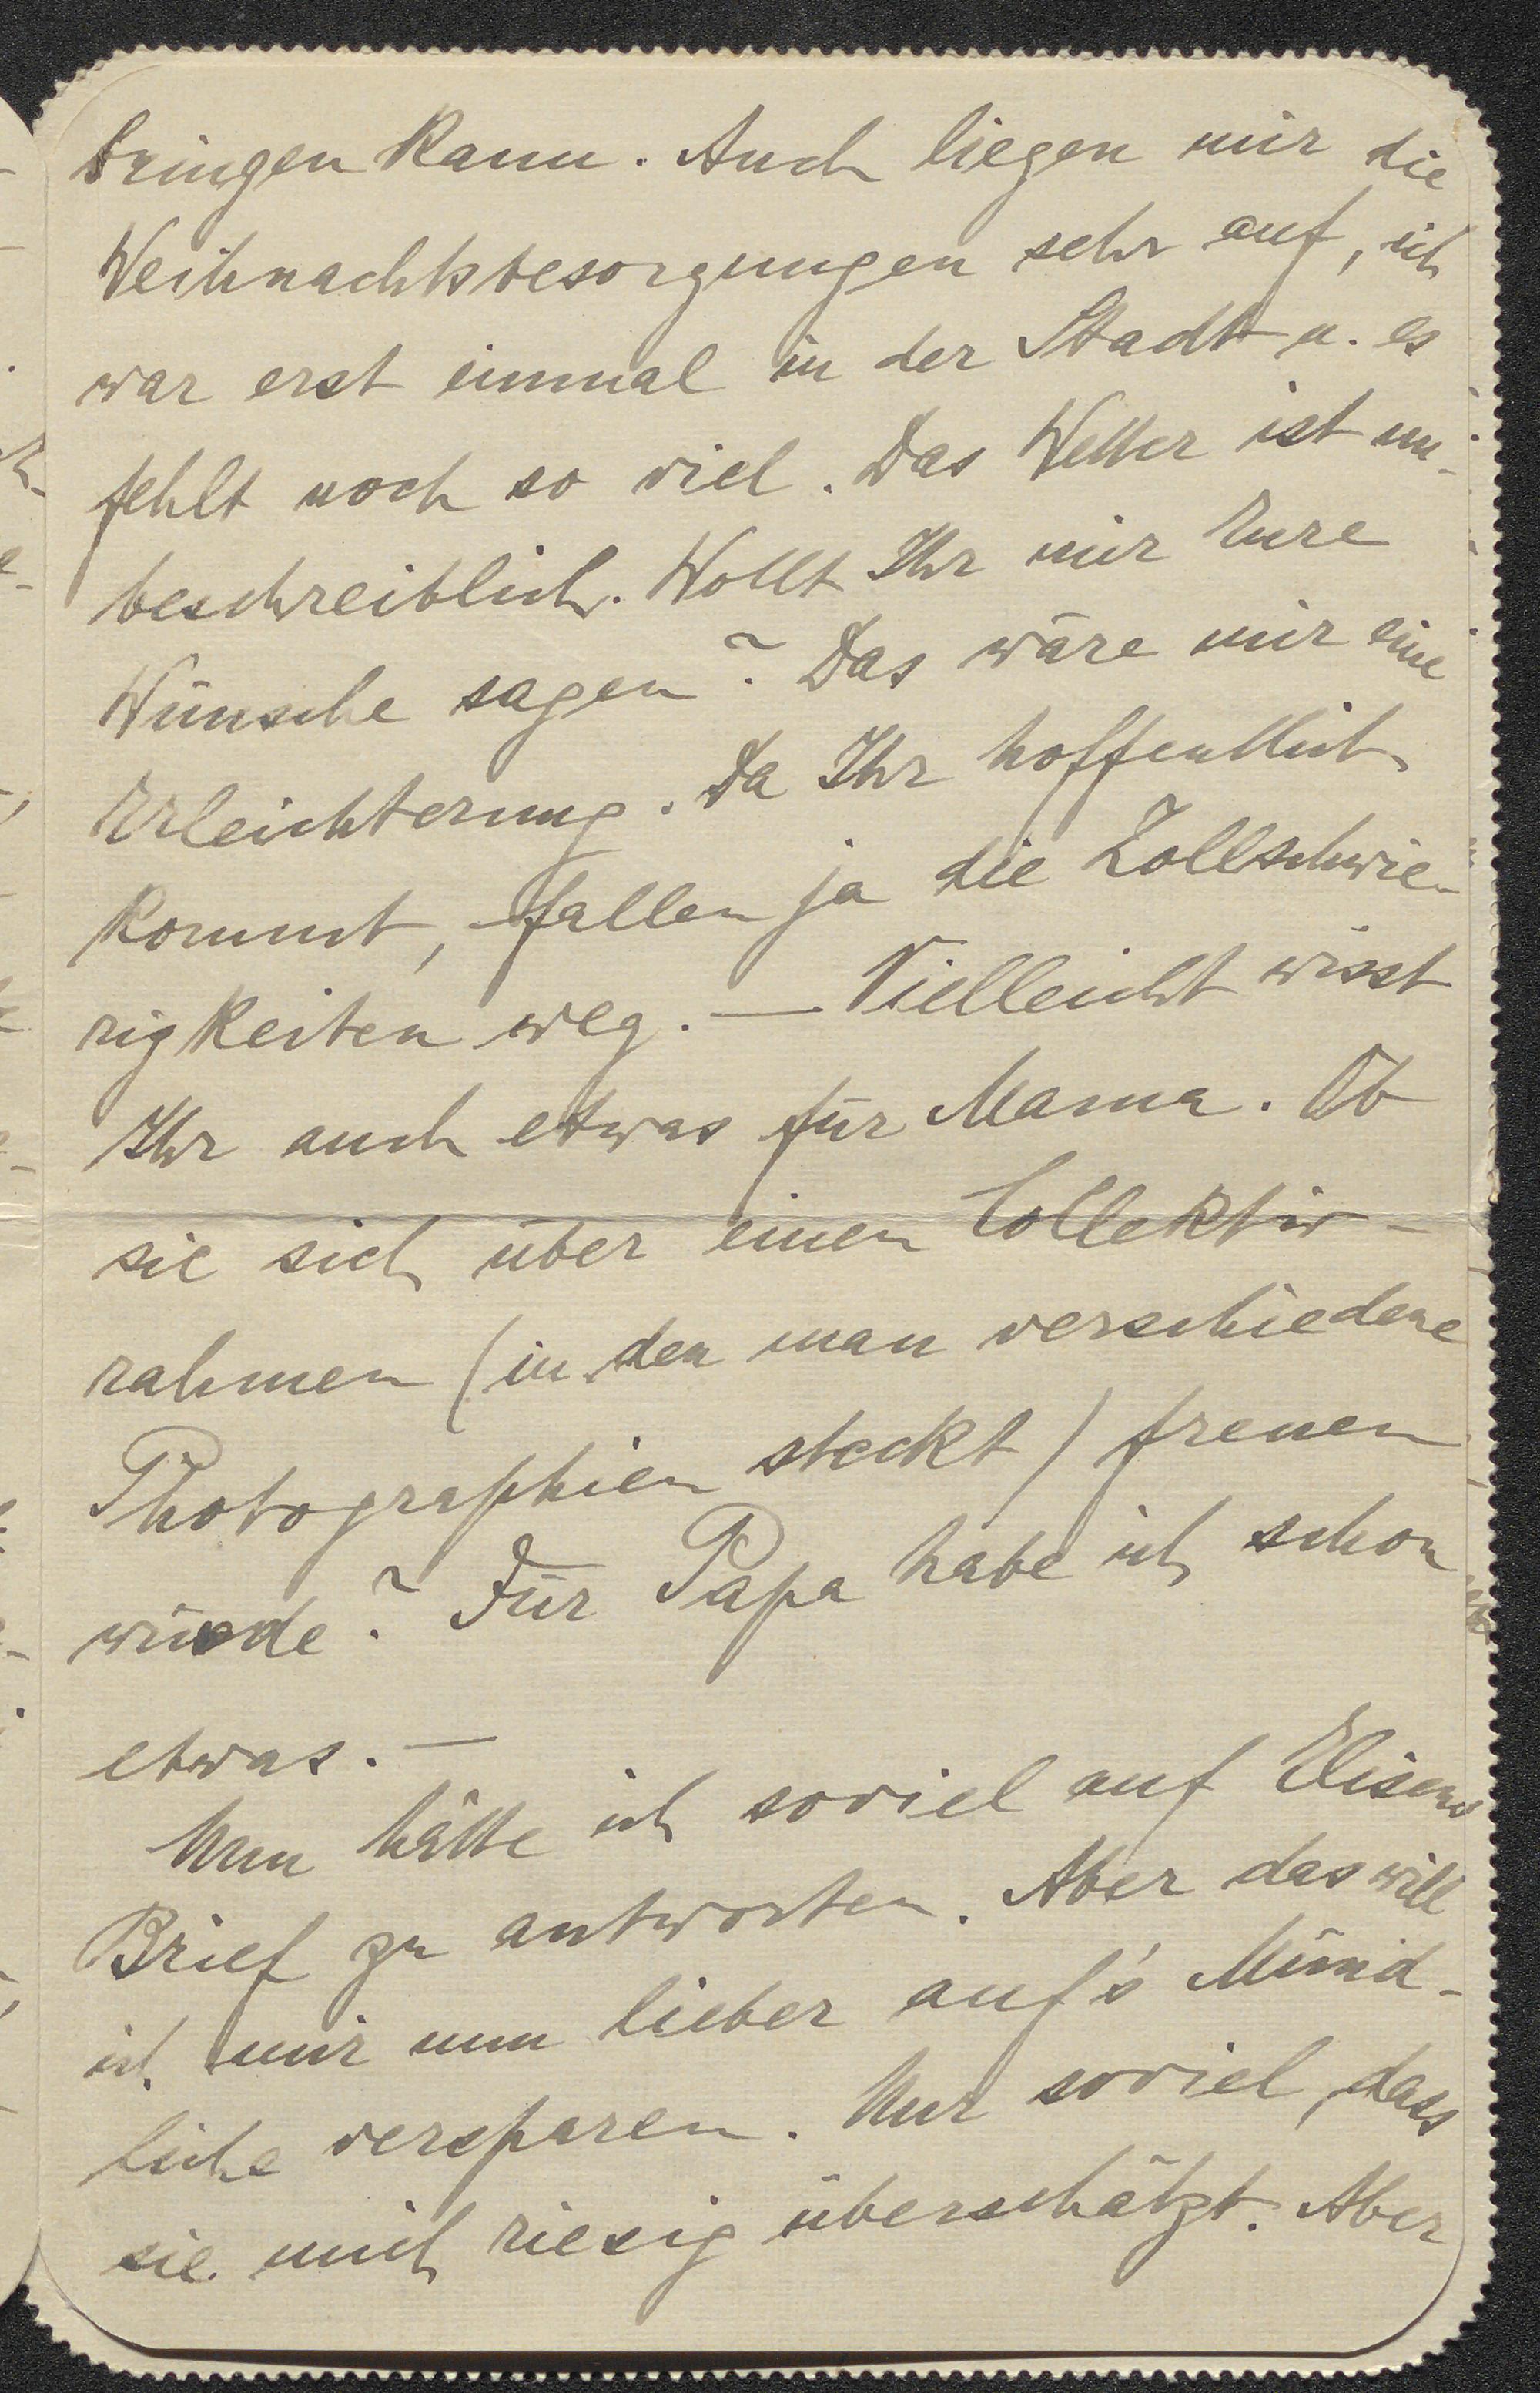 bringen kann. Auch liegen mir die
Weihnachtsbesorgungen sehr auf, ich
war erst einmal in der Stadt u. es
fehlt noch so viel. Das Wetter ist un-
beschreiblich. Wollt Ihr mir Eure
Wünsche sagen? Das wäre mir eine
Erleichterung. Da Ihr hoffentlich
kommt, fallen ja die Zollschwie-
rigkeiten weg. — Vielleicht wisst
Ihr auch etwas für Mama. Ob
sie sich über einen Collektiv-
rahmen (in den man verschiedene
Photographien steckt) freuen
würde? Für Papa habe ich schon
etwas. —
Nun hätte ich soviel auf Elisens
Brief zu antworten. Aber das will
ich mir nun lieber auf's Münd-
liche versparen. Nur soviel, dass
sie mich riesig überschätzt. Aber